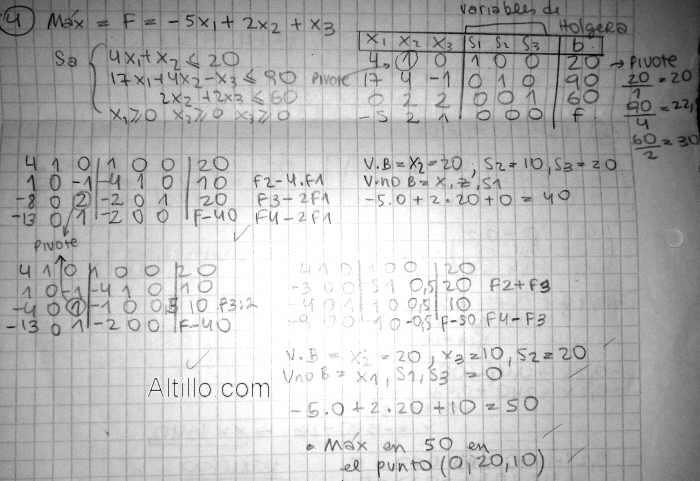 4 Máx = F = -5x₁ + 2x₂ + x₃
Variables de
Holgera
Sa
4x₁ + x₂ ≤ 20
17x₁ + 4x₂ - x₃ ≤ 90
2x₂ + 2x₃ ≤ 60
x₁ ≥ 0 x₂ ≥ 0 x₃ ≥ 0
X₁ X₂ X₃ S₁ S₂ S₃ b
4 1 0 1 0 0 20 → pivote
Pivote 17 4 -1 0 1 0 90
0 2 2 0 0 1 60
-5 2 1 0 0 0 F
20/1 = 20
90/4 = 22,
60/2 = 30
4 1 0 1 0 0 20
1 0 -1 -4 1 0 10 F2-4.F1
-8 0 2 -2 0 1 20 F3-2F1
-13 0 1 -2 0 0 F-40 F4-2F1
Pivote
V.B = x₂ = 20, S₂ = 10, S₃ = 20
V.no B = x,
S1
-5.0 + 2.20 + 0 = 40
4 1 0 1 0 0 20
1 0 -1 -4 1 0 10
-4 0 1 -1 0 0 5 10 F3:2
-13 0 1 -2 0 0 F-40
4 1 0 1 0 0 20
-3 0 0 51 0,5 20 F2+F3
-4 0 1 10 0,5 10
-9 0 0 -1 0 -0,5 F-50 F4-F3
V.B = x₂ = 20, x₃ = 10, S₂ = 20
V no B = x₁, S₁, S₃ = 0
-5.0 + 2.20 + 10 = 50
• Máx en 50 en
el punto (0,20,10)
Altillo.com